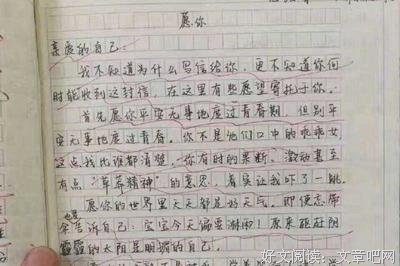 愿你
亲爱的自己:
我不知道为什么写信给你,更不知道你何
时能收到这封信,在这里有些愿望寄托于你。
首先愿你平安无事地度过青春期,但别平
安无事地度过青春。你不是他们口中的乖乖女,
这点我比谁都清楚,你有时的果断、激动甚至
有点“莽莽精神”的意思,着实让我吓了一跳。
愿你的世界里天天都是好天气。即便忘带
伞也要告诉自己:宝宝今天偏要淋雨!原来砸在阴
霾的太阳是明媚的自己。
好文阅读:文章吧网